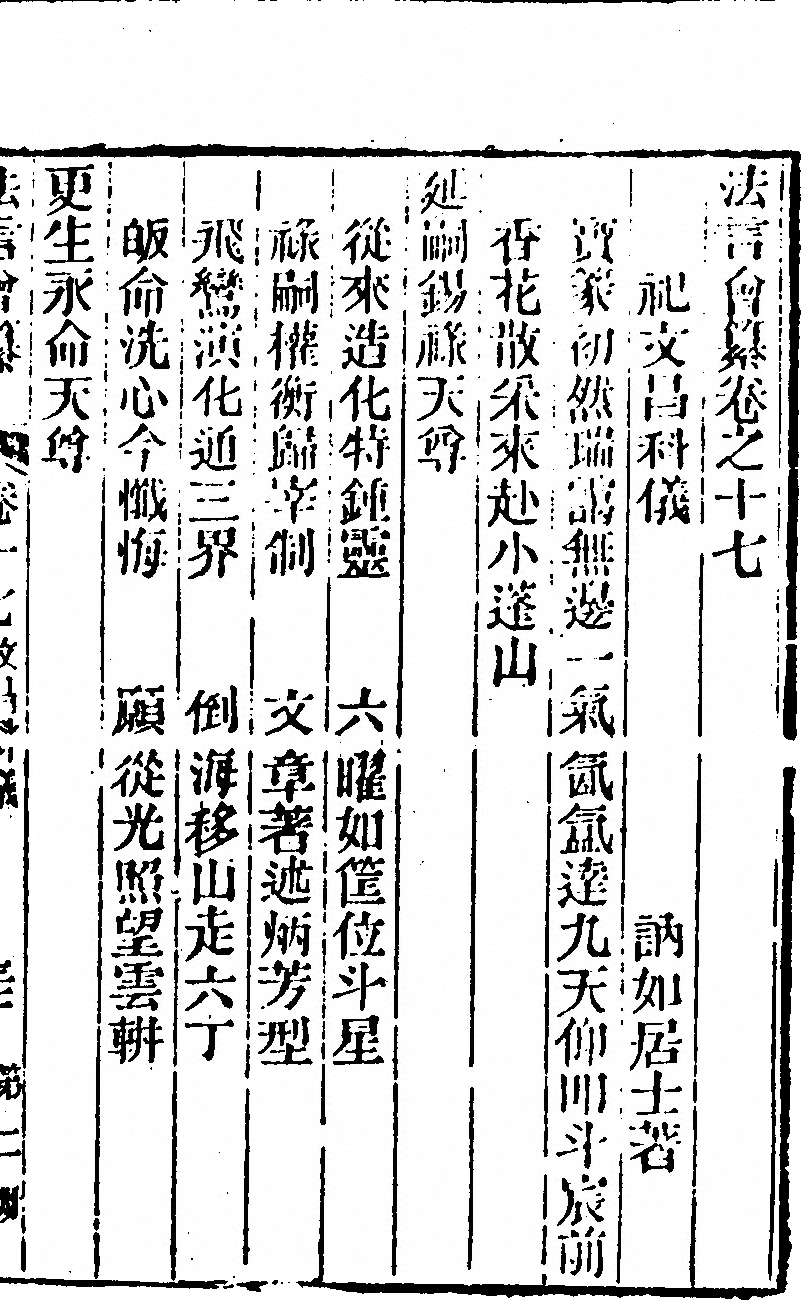 法言會纂卷之十七
祀文昌科儀 訥如居士著
寶篆初然瑞靄無邊一氣氤氳達九天仰叩斗宸前
香花散采來赴小蓬山
延嗣錫祿天尊
從來造化特鍾靈 六曜如筐位斗星
祿嗣權衡歸宰制 文章著述炳芳型
飛鸞演化遍三界 倒海移山走六丁
皈命洗心今懺悔 願從光照望雲軿
更生永命天尊
法言會纂 卷十七文昌科儀 第二